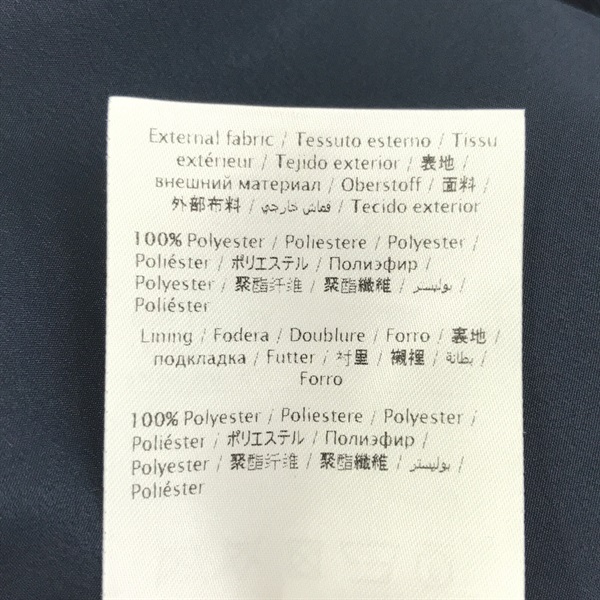 External fabric / Tessuto esterno / Tissu
extérieur / Tejido exterior / 表地 /
внешний материал / Oberstoff / 面料 /
外部布料 / قماش خارجي / Tecido exterior
100% Polyester / Poliestere / Polyester /
Poliéster / ポリエステル / Полиэфир /
Polyester / 聚酯纤维 / 聚酯纖維 / بوليستر /
Poliéster
Lining / Fodera / Doublure / Forro / 裏地 /
подкладка / Futter / 衬里 / 襯裡 / بطانة /
Forro
100% Polyester / Poliestere / Polyester /
Poliéster / ポリエステル / Полиэфир /
Polyester / 聚酯纤维 / 聚酯纖維 / بوليستر /
Poliéster